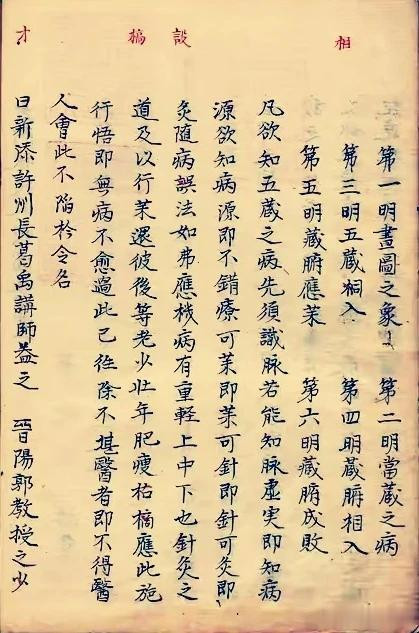 相
設
槁
才
第一明畫圖之象　第二明當蔵之病
第三明五蔵相入　第四明蔵腑相入
第五明蔵腑應茉　第六明蔵腑成敗
凡欲知五蔵之病先須識脉若能知脉虚実即知病
源欲知病源即不錯療可茉即茉可針即針可灸即
灸随病誤法如弗應機病有重軽上中下也針灸之
道及以行茉還彼後等老少壮年肥瘦枯槗應此施
行悟即無病不愈過此已徃除不堪醫者即不得醫
人會此不陷於令名
日新添許州長葛禹講師益之　晋陽郭教授之少